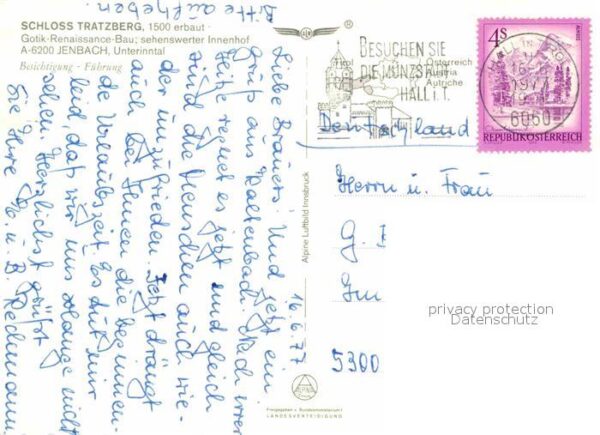 SCHLOSS TRATZBERG, 1500 erbaut
Gotik-Renaissance-Bau; sehenswerter Innenhof
A-6200 JENBACH, Unterinntal
Besichtigung - Führung
Bitte aufheben.
16.6.77
Liebe Brauers! Und jetzt ein
Gruß aus Kaltenbach. Nach
Hitze regnet es jetzt und gleich
sind die Menschen auch wie-
der unzufrieden. Jetzt drängt
auch bei Ihnen die beginnen-
de Urlaubszeit. Es tut mir
leid, daß wir uns solange nicht
sehen. Herzlichst grüßt
Sie Ihre u. B.
Alpine Luftbild Innsbruck
ALPINE
Freigegeben v. Bundesministerium f.
LANDESVERTEIDIGUNG
BESUCHEN SIE
DIE MÜNZSTADT
HALL I. T.
Tirol
Österreich
Austria
Autriche
4S
6060
REPUBLIK ÖSTERREICH
Deutschland
Herrn u. Frau
G.
5300
privacy protection
Datenschutz